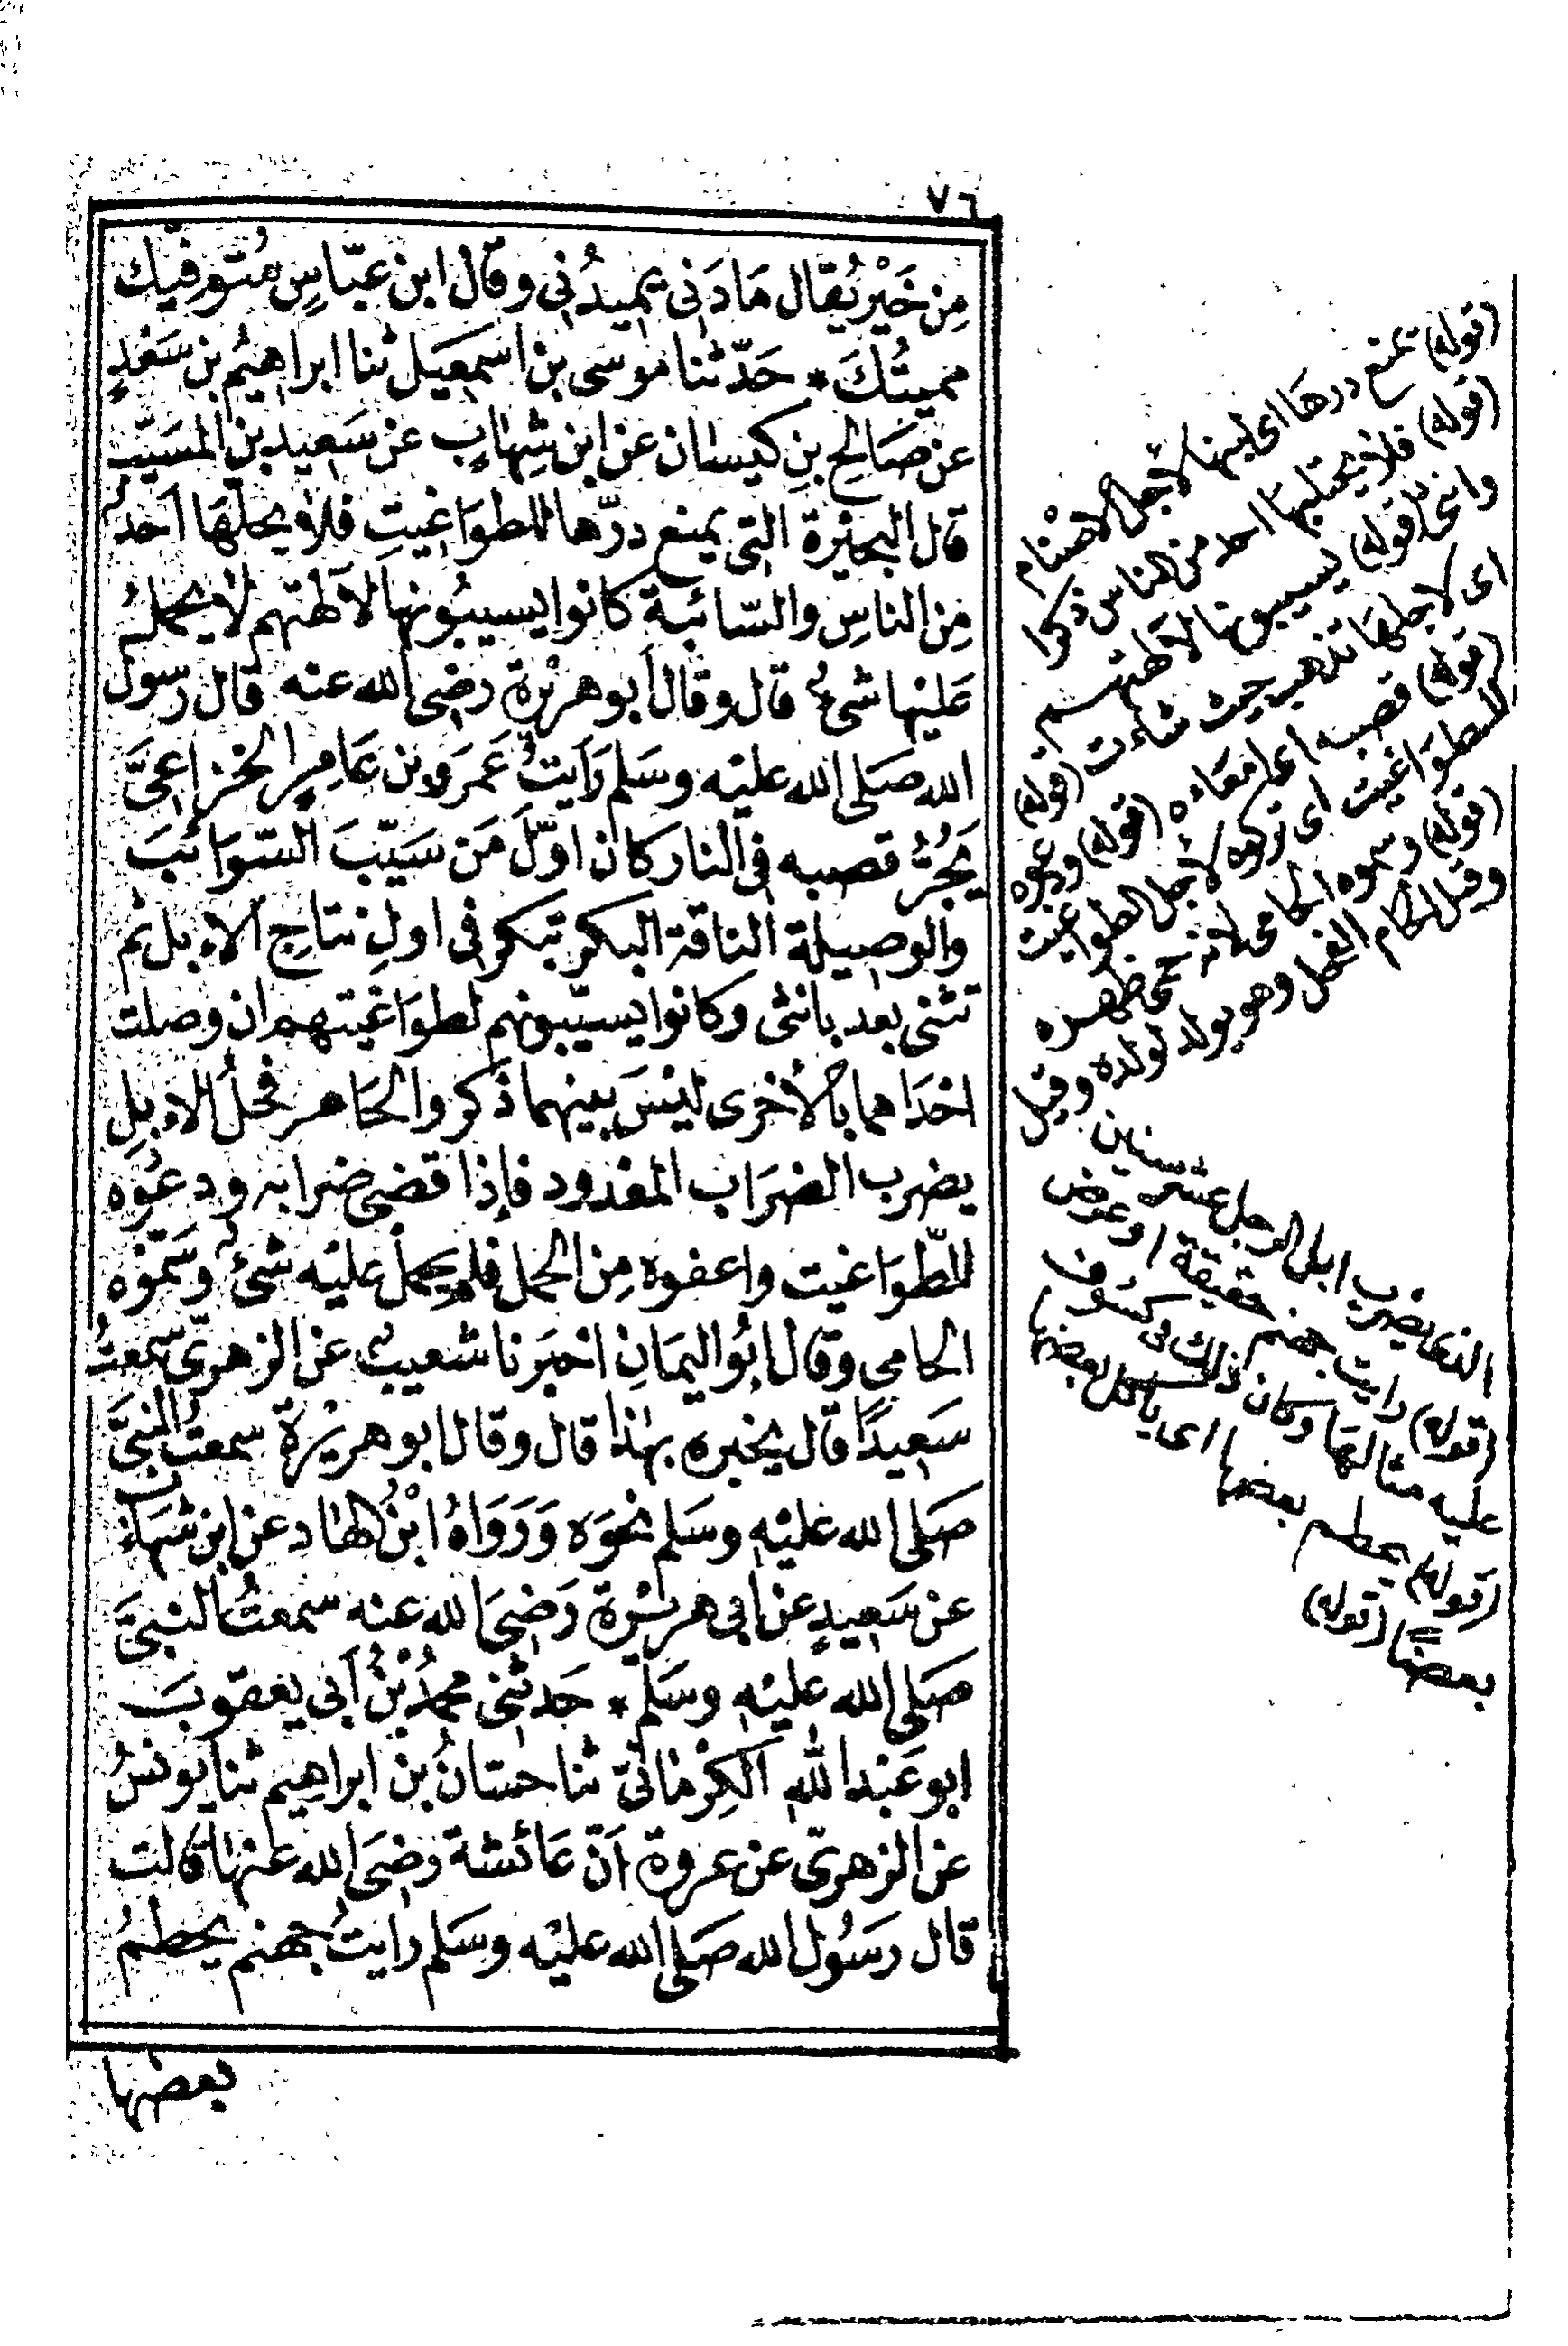 ٧٦
مِن خَيْرٍ يُقال مَادَنى يميدُنى وقال ابن عبّاسٍ مُتوفّيك
مميتُكَ * حَدّثنا موسى بن اسمعيل ثنا ابراهيمُ بن سَعْدٍ
عن صَالح بنِ كيسان عن ابن شِهابٍ عن سَعيد بن المسَيّب
قال البحيْرة التى يمنع درّها للطوَاغيتِ فلا يحلبها اَحدٌ
مِن الناسِ والسّائبة كانوا يسيبُونها لآلهتهم لا يحملُ
عَليْها شىءٌ قال وقال اَبو هريْرة رضى الله عنه قال رسول
الله صَلى الله عليْه وسَلم رَاَيتُ عَمرَو بن عَامرٍ الخزاعىَّ
يَجُرُّ قصبه فى النار كان اوّلَ مَن سَيّبَ السّوَائبَ
والوصيلة الناقة البكر تبكر فى اولِ نتاج الاءبل ثم
تثنى بعد بانثى وكانوا يسيّبونهم لطوَاغيتهم ان وصلت
احْدَاهما بالأخرى ليْسَ بينهما ذكر والحَامر فحلُ الاءبلِ
يضرب الضرَاب المعدود فإذا قضى ضرابه ودعُوه
للطّوَاغيت واعفوه مِن الحمل فلم يحمل عليْه شىءٌ وسَمّوْه
الحامى وقال ابُو اليمَانِ اخبَرنا شعيبٌ عن الزهرىّ سمعتُ
سَعيدًا قال يخبره بهٰذا قال وقال ابو هريْرة سمعتُ النبىَّ
صَلى الله عليْه وسَلم نحوَه وَرَوَاهُ ابْنُ الهاد عن ابن شهَاب
عن سَعيدٍ عن ابى هريْرة رَضىَ الله عنه سمعتُ النبىَّ
صَلى الله عليْه وسَلم * حَدثنى محمدُ بْنُ اَبى يعقوبَ
ابو عَبْد اللّٰه الكِرْمانىّ ثنا حسّانُ بن ابراهيم ثنا يونسُ
عن الزهرىّ عن عروة اَنّ عَائشة رضىَ الله عنها قالت
قال رسَوُل الله صَلى الله عليْه وسَلم رايتُ جهنم يحطمُ
بعضها
(قوله) تمنع درهَا اى لبنها لاجل الاصْنام
(قوله) فلا يحتلبها احد من الناس ذكرا
وانثى (قوله) يسيبونها لآلهتهم
اى لاجلهَا تذهب حيث شاءت (قوله)
(قوله) قصبه اى امعاءه (قوله) ودعوه
للطوَاغيت اى تركوه لاجل الطواغيت
(قوله) وسموه الحامى لانه حمى ظهره
وقيل الحام الفحل وهو يولد لولده وقيل
الذى يضرب ابل الرجل عشر سنين
(قوله) رايت جهنم حقيقة او عرض
عليه مثالهَا وكان ذلك فى كسوف
(قوله) يحطم بعضها اى ياكل بعضها
بعضًا (قوله)